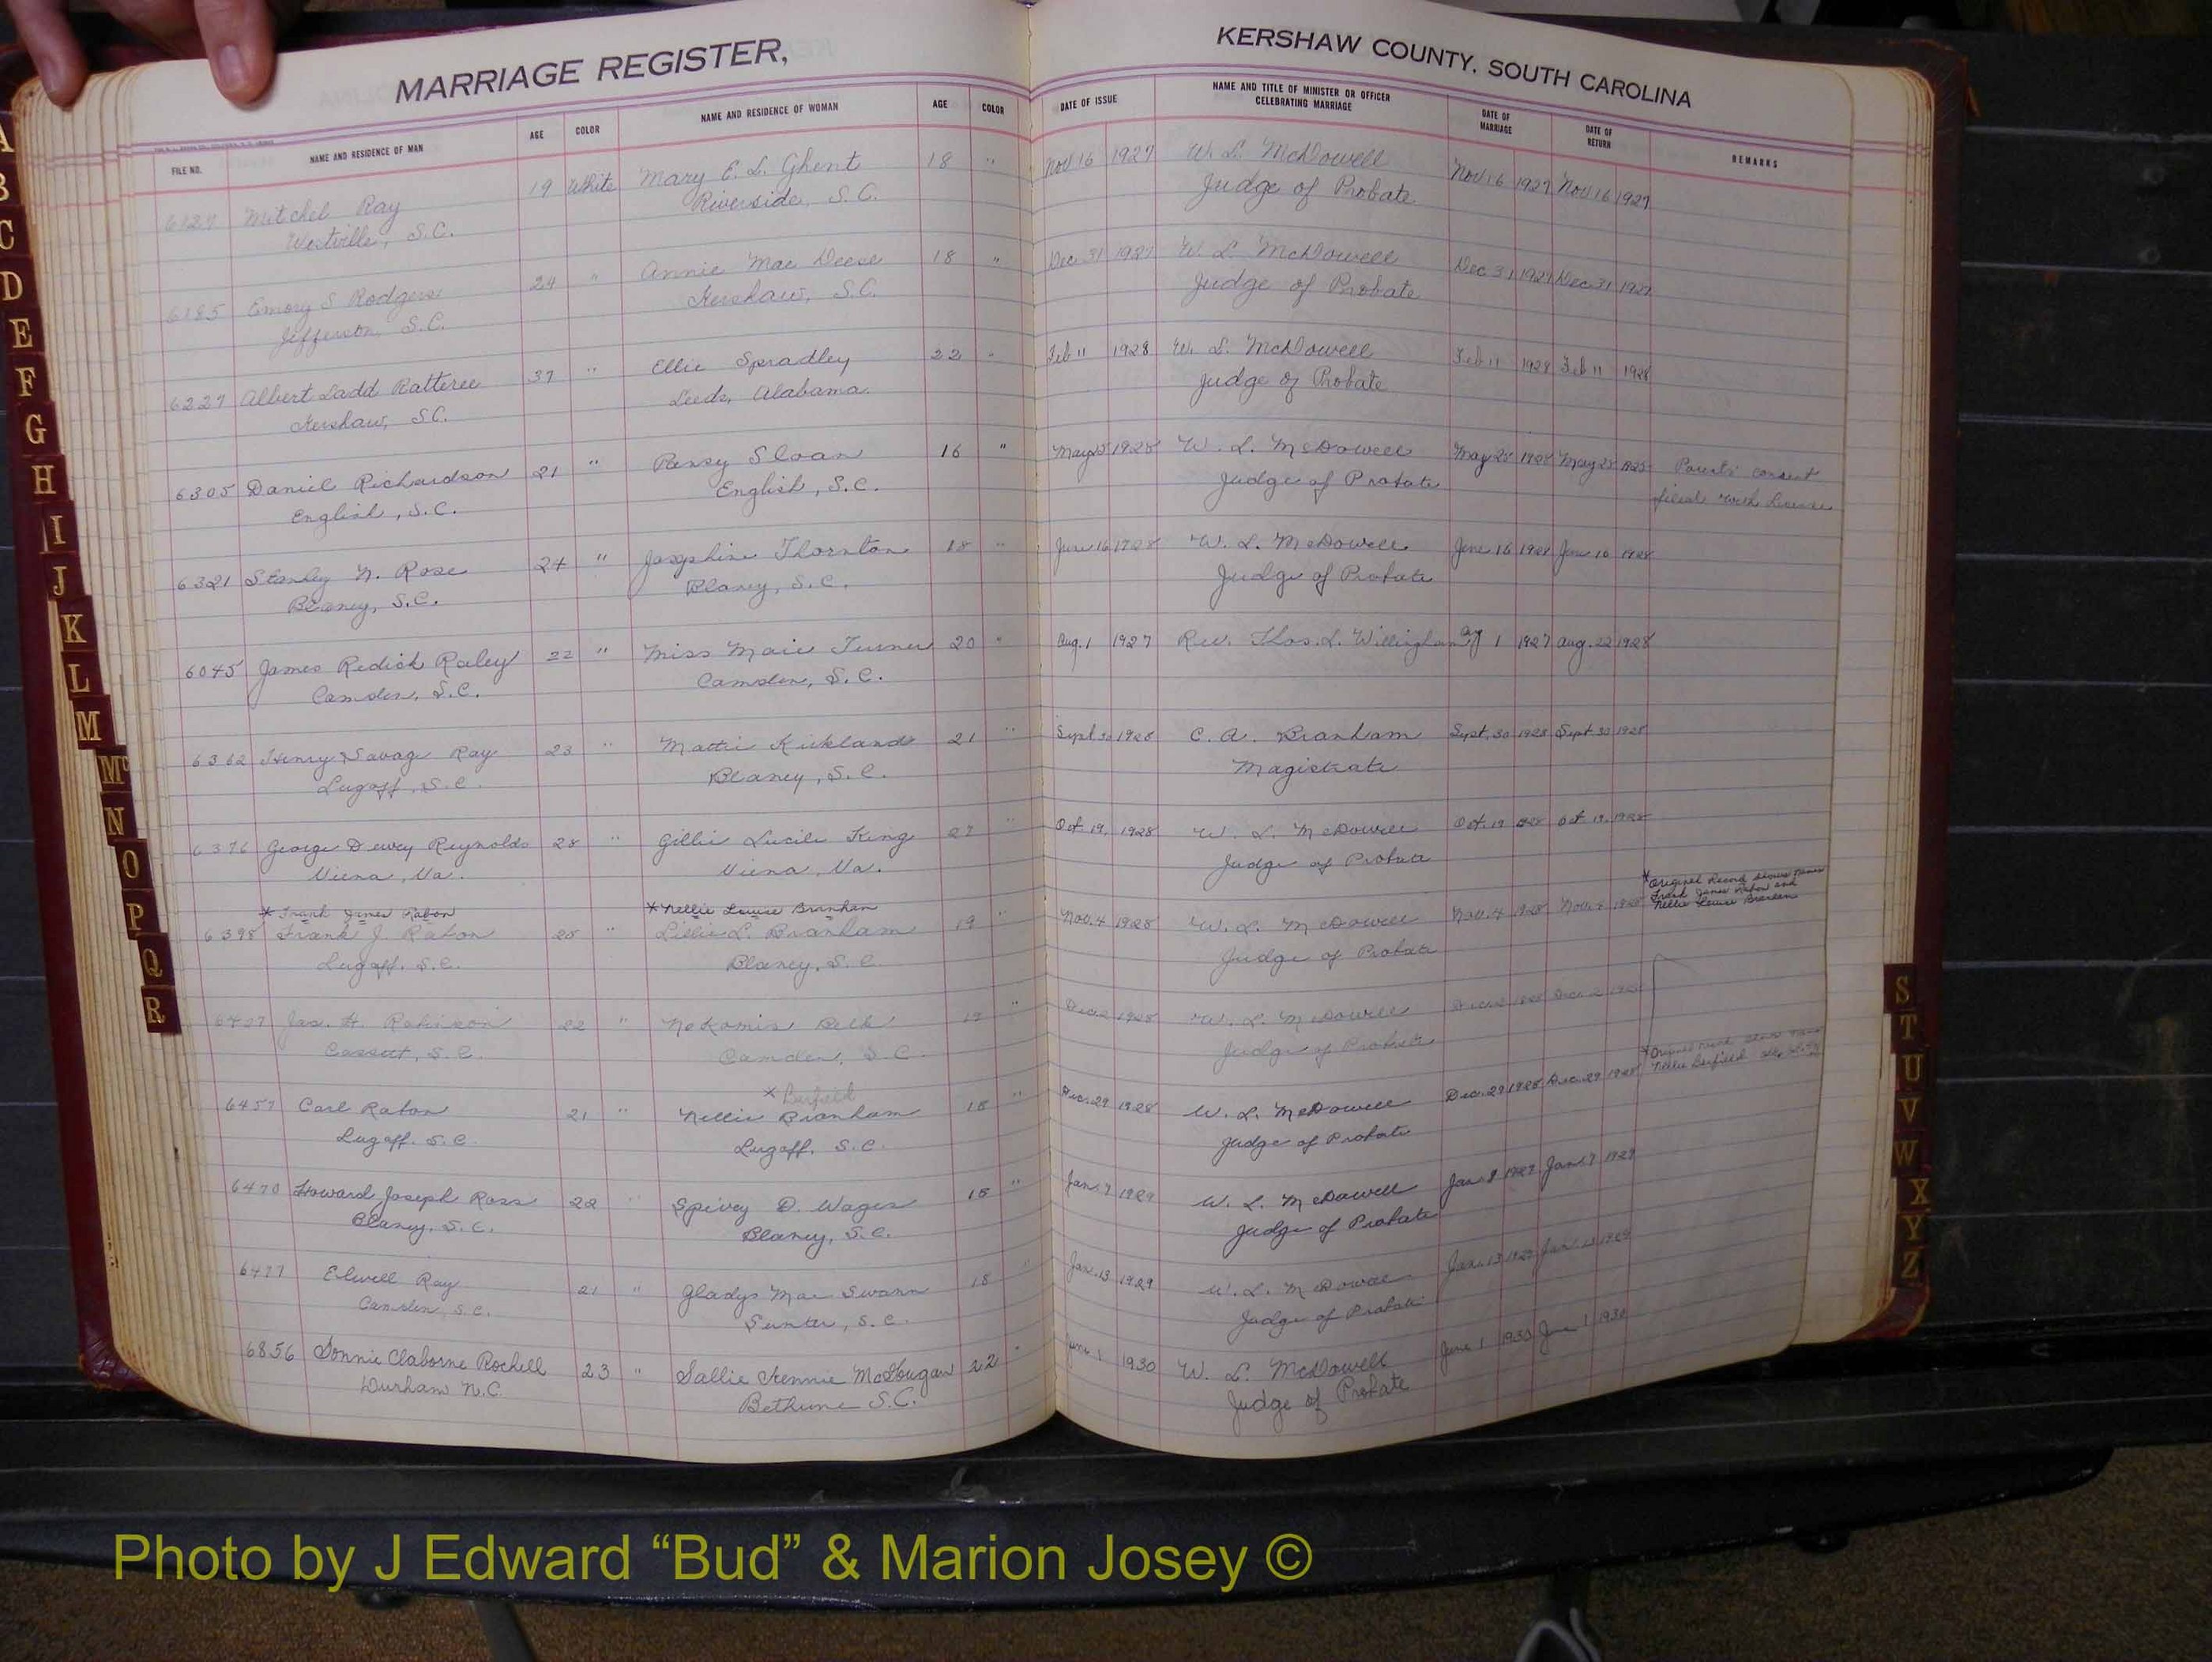 MARRIAGE REGISTER,
KERSHAW COUNTY, SOUTH CAROLINA
FILE NO. NAME AND RESIDENCE OF MAN AGE COLOR NAME AND RESIDENCE OF WOMAN AGE COLOR DATE OF ISSUE NAME AND TITLE OF MINISTER OR OFFICER CELEBRATING MARRIAGE DATE OF MARRIAGE DATE OF RETURN REMARKS
6127 Mitchel Ray 19 White Mary E. L. Ghent 18 " Nov 16 1927 W. L. McDowell Nov 16 1927 Nov 16 1927
Westville, S.C. Riverside, S.C. Judge of Probate
6185 Emory S Rodgers 24 " Annie Mae Deese 18 " Dec 31 1927 W. L. McDowell Dec 31 1927 Dec 31 1927
Jefferson, S.C. Kershaw, S.C. Judge of Probate
6227 Albert Ladd Ratteree 37 " Ellie Spradley 22 " Feb 11 1928 W. L. McDowell Feb 11 1928 Feb 11 1928
Kershaw, S.C. Leeds, Alabama. Judge of Probate
6305 Daniel Richardson 21 " Pansy Sloan 16 " May 25 1928 W. L. McDowell May 25 1928 May 25 1928 Parents' consent
English, S.C. English, S.C. Judge of Probate filed with License
6321 Stanley N. Rose 24 " Josephine Thornton 18 " June 16 1928 W. L. McDowell June 16 1928 June 16 1928
Blaney, S.C. Blaney, S.C. Judge of Probate
6045 James Redick Raley 22 " Miss Maie Turner 20 " Aug. 1 1927 Rev. Thos. L. Willingham Aug 1 1927 Aug. 22 1928
Camden, S.C. Camden, S.C.
6362 Henry Savage Ray 23 " Mattie Kirkland 21 " Sept 30 1928 C. A. Branham Sept. 30 1928 Sept 30 1928
Lugoff, S.C. Blaney, S.C. Magistrate
6376 George Dewey Reynolds 28 " Gillie Lucile King 27 " Oct. 19, 1928 W. L. McDowell Oct. 19 1928 Oct 19, 1928
Viena, Va. Viena, Va. Judge of Probate
* Frank James Rabon * Nellie Louise Branham * Original Record shows names
6398 Frank J. Rabon 25 " Lillie L. Branham 19 " Nov. 4 1928 W. L. McDowell Nov. 4 1928 Nov. 4 1928 Frank James Rabon and
Lugoff, S.C. Blaney, S.C. Judge of Probate Nellie Louise
6427 Jas. H. Robinson 22 " Nekomis Belk " Dec 2 1928 W. L. McDowell Dec. 2 1928 Dec. 2 1928
Cassatt, S.C. Camden, S.C. Judge of Probate
* Barfield * Original
6457 Carl Rabon 21 " Nellie Branham 18 " Dec. 29 1928 W. L. McDowell Dec. 29 1928 Dec. 29 1928 Nellie Barfield
Lugoff, S.C. Lugoff, S.C. Judge of Probate
6470 Howard Joseph Ross 22 " Spivey D. Wages 18 " Jan. 7 1929 W. L. McDowell Jan. 1929 Jan. 7 1929
Blaney, S.C. Blaney, S.C. Judge of Probate
6477 Elwell Ray 21 " Gladys Mae Swann 18 " Jan. 13 1929 W. L. McDowell Jan. 13 1929 Jan. 13 1929
Camden, S.C. Sumter, S.C. Judge of Probate
6856 Donnie Claborne Rochell 23 " Sallie Kennie McDougan 22 " June 1 1930 W. L. McDowell June 1 1930 June 1 1930
Durham N.C. Bethune S.C. Judge of Probate
A
B
C
D
E
F
G
H
I
J
K
L
M
Mc
N
O
P
Q
R
S
T
U
V
W
X
Y
Z
Photo by J Edward “Bud” & Marion Josey ©